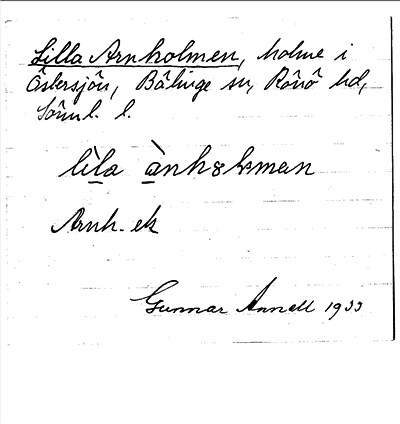 Lilla Arnholmen, holme i
Östersjön, Bälinge sn, Rönö hd,
Söml. l.
lìla ànhɷlman
Arnh. ek
Gunnar Annell 1933